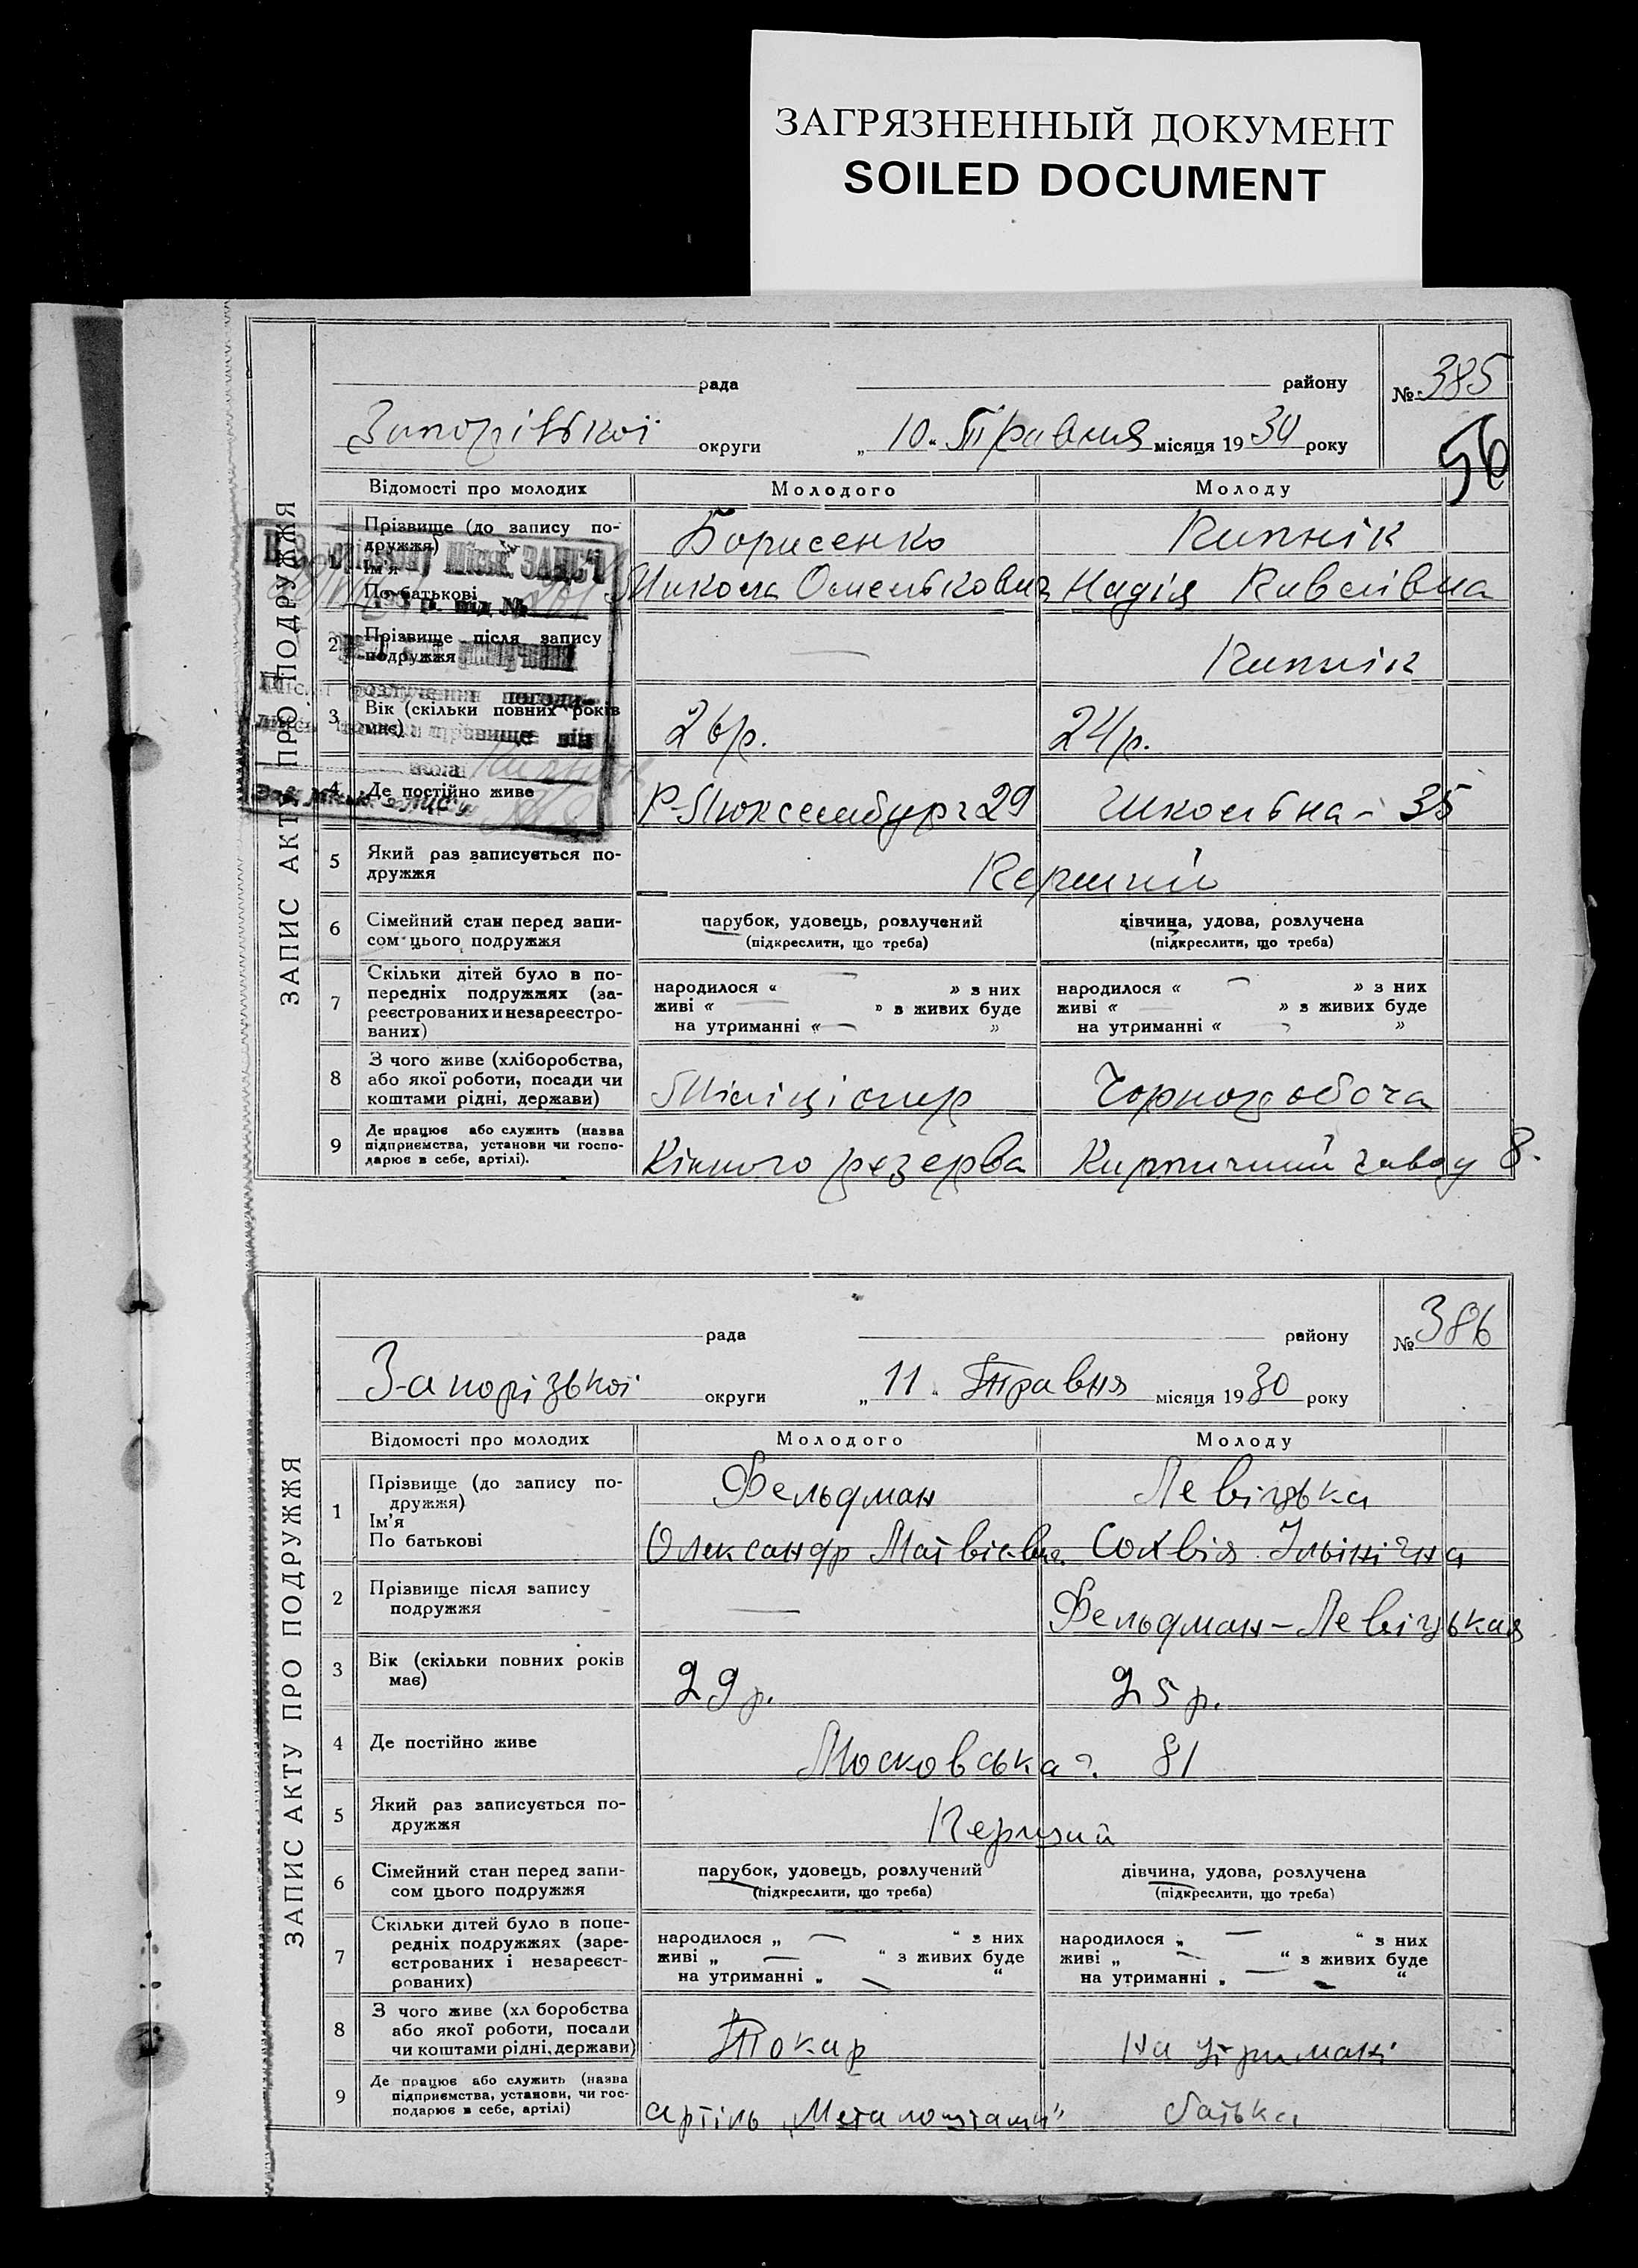 ЗАГРЯЗНЕННЫЙ ДОКУМЕНТ
SOILED DOCUMENT
ЗАПИС АКТУ ПРО ПОДРУЖЖЯ
рада району № 385
Запорізької округи „ 10 „ Травня місяця 19 30 року
56
Відомості про молодих Молодого Молоду
1 Прізвище (до запису по-
дружжя) Борисенко
Ім'я
По батькові Микола Омелькович Надія Павлівна
2 Прізвище після запису
подружжя —
3 Вік (скільки повних років
має) 26 р. 24 р.
4 Де постійно живе Р-Люксембург 29 Школьна - 35
5 Який раз записується по-
дружжя Перший
6 Сімейний стан перед запи-
сом цього подружжя
парубок, удовець, розлучений дівчина, удова, розлучена
(підкреслити, що треба) (підкреслити, що треба)
7 Скільки дітей було в по-
передніх подружжях (за-
реєстрованих и незареєстро-
ваних)
народилося « — » з них народилося « — » з них
живі « — » з живих буде живі « — » з живих буде
на утриманні « — » на утриманні « — »
8 З чого живе (хліборобства,
або якої роботи, посади чи
коштами рідні, держави) Міліціонер Чорноробоча
9 Де працює або служить (назва
підприємства, установи чи госпо-
дарює в себе, артілі). Кінного резерва Кирпичний завод 8.
ЗАПИС АКТУ ПРО ПОДРУЖЖЯ
рада району № 386
Запорізької округи „ 11 „ Травня місяця 19 30 року
Відомості про молодих Молодого Молоду
1 Прізвище (до запису по-
дружжя) Фельдман Левіцька
Ім'я
По батькові Олександр Матвієвич Сохвія Ільінічна
2 Прізвище після запису
подружжя — Фельдман-Левіцькая
3 Вік (скільки повних років
має) 29 р. 25 р.
4 Де постійно живе Московська 81
5 Який раз записується по-
дружжя Перший
6 Сімейний стан перед запи-
сом цього подружжя
парубок, удовець, розлучений дівчина, удова, розлучена
(підкреслити, що треба) (підкреслити, що треба)
7 Скільки дітей було в попе-
редніх подружжях (заре-
єстрованих і незареєст-
рованих)
народилося „ — “ з них народилося „ — “ з них
живі „ — “ з живих буде живі „ — “ з живих буде
на утриманні „ — “ на утриманні „ — “
8 З чого живе (хл боробства
або якої роботи, посади
чи коштами рідні, держави) Токар На утримані
9 Де працює або служить (назва
підприємства, установи, чи гос-
подарює в себе, артілі) артіль „Металоштамп" батька